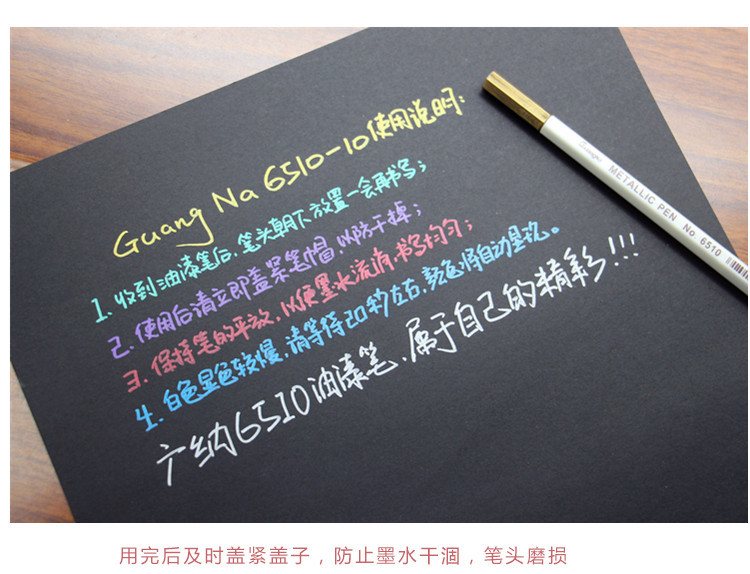 Guang Na 6510-10使用说明：
1. 收到油漆笔后，笔头朝下放置一会再书写；
2. 使用后请立即盖紧笔帽，以防干掉；
3. 保持笔的平放，以便墨水流淌书写均匀；
4. 白色显色较慢，请等待20秒左右，颜色将自动呈现。
广纳6510油漆笔，属于自己的精彩!!!
METALLIC PEN No 6510
用完后及时盖紧盖子，防止墨水干涸，笔头磨损